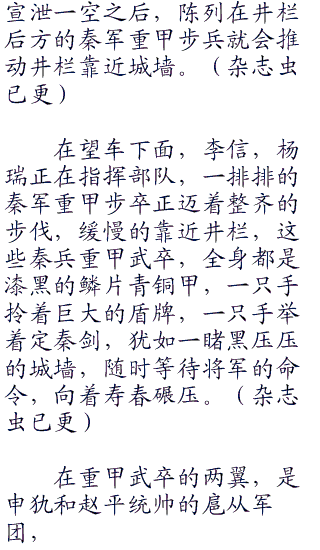 宣泄一空之后，陈列在井栏
后方的秦军重甲步兵就会推
动井栏靠近城墙。（杂志虫
已更）
在望车下面，李信，杨
瑞正在指挥部队，一排排的
秦军重甲步卒正迈着整齐的
步伐，缓慢的靠近井栏，这
些秦兵重甲武卒，全身都是
漆黑的鳞片青铜甲，一只手
拎着巨大的盾牌，一只手举
着定秦剑，犹如一睹黑压压
的城墙，随时等待将军的命
令，向着寿春碾压。（杂志
虫已更）
在重甲武卒的两翼，是
申犰和赵平统帅的扈从军
团，